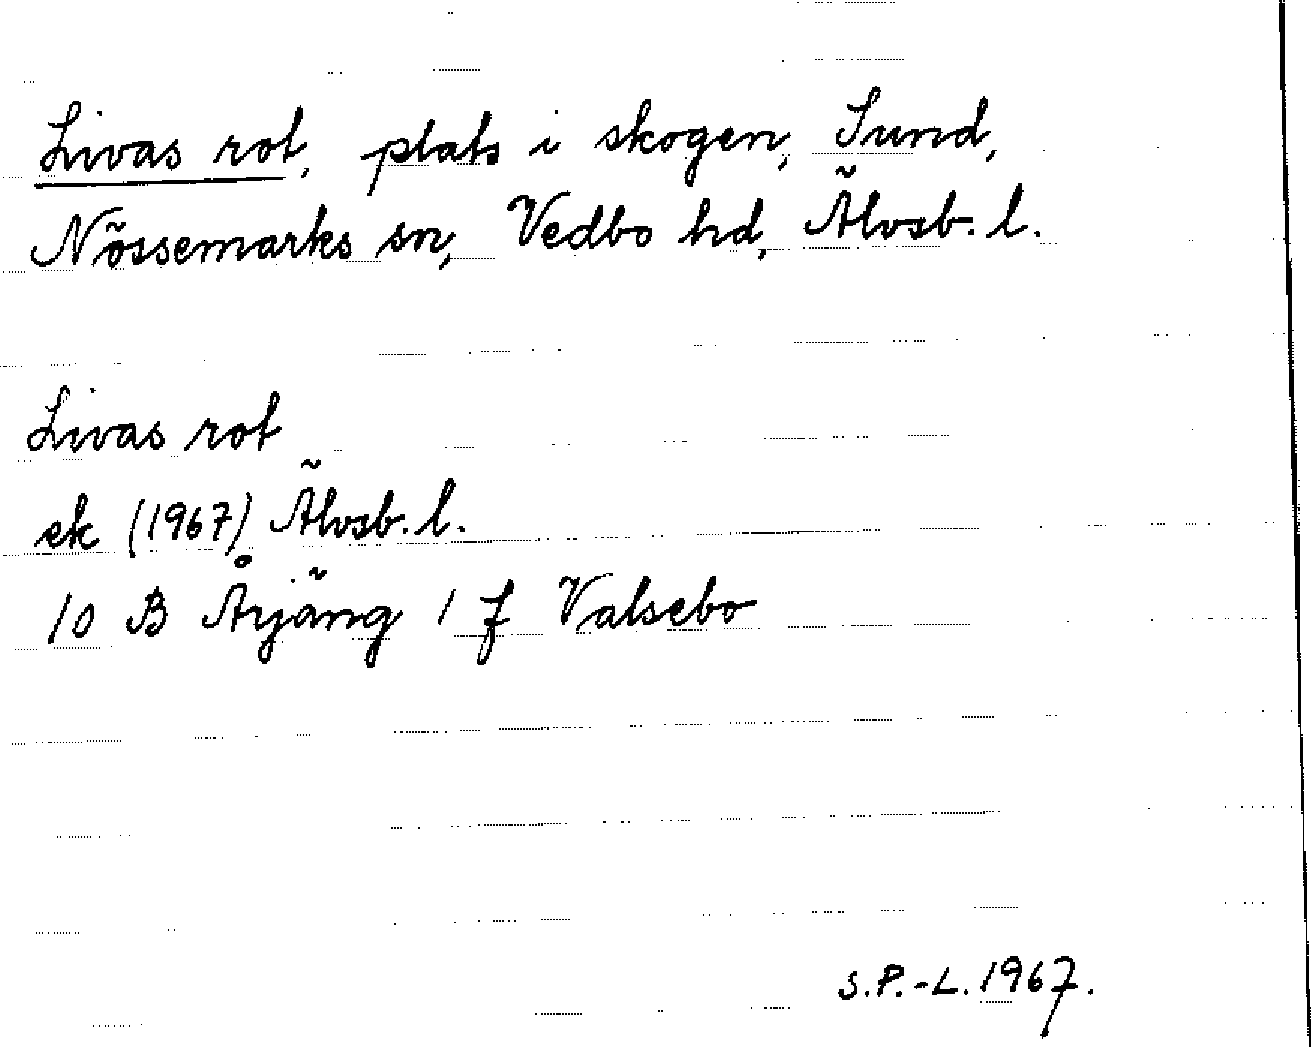 Livas rot, plats i skogen, Sund,
Nössemarks sn, Vedbo hd, Älvsb. l.
Livas rot
ek (1967) Älvsb. l.
10 B Årjäng 1 f Valsebo
S.P.-L. 1967.